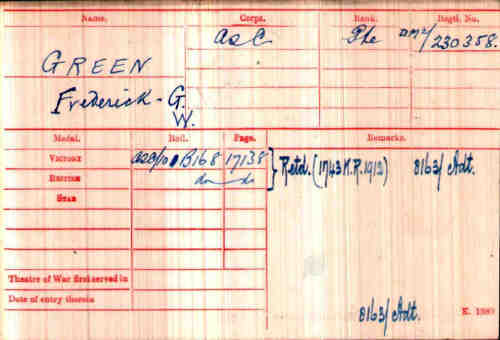 Name. Corps. Rank. Regtl. No.
GREEN ASC Pte DM2/230358.
Frederick - G.
W.
Medal. Roll. Page. Remarks.
VICTORY ASC/101B168 17138 } Retd. (1743 K.R. 1912) 8163/Adt.
BRITISH do do
STAR
Theatre of War first served in
Date of entry therein
8163/Adt. K. 1380